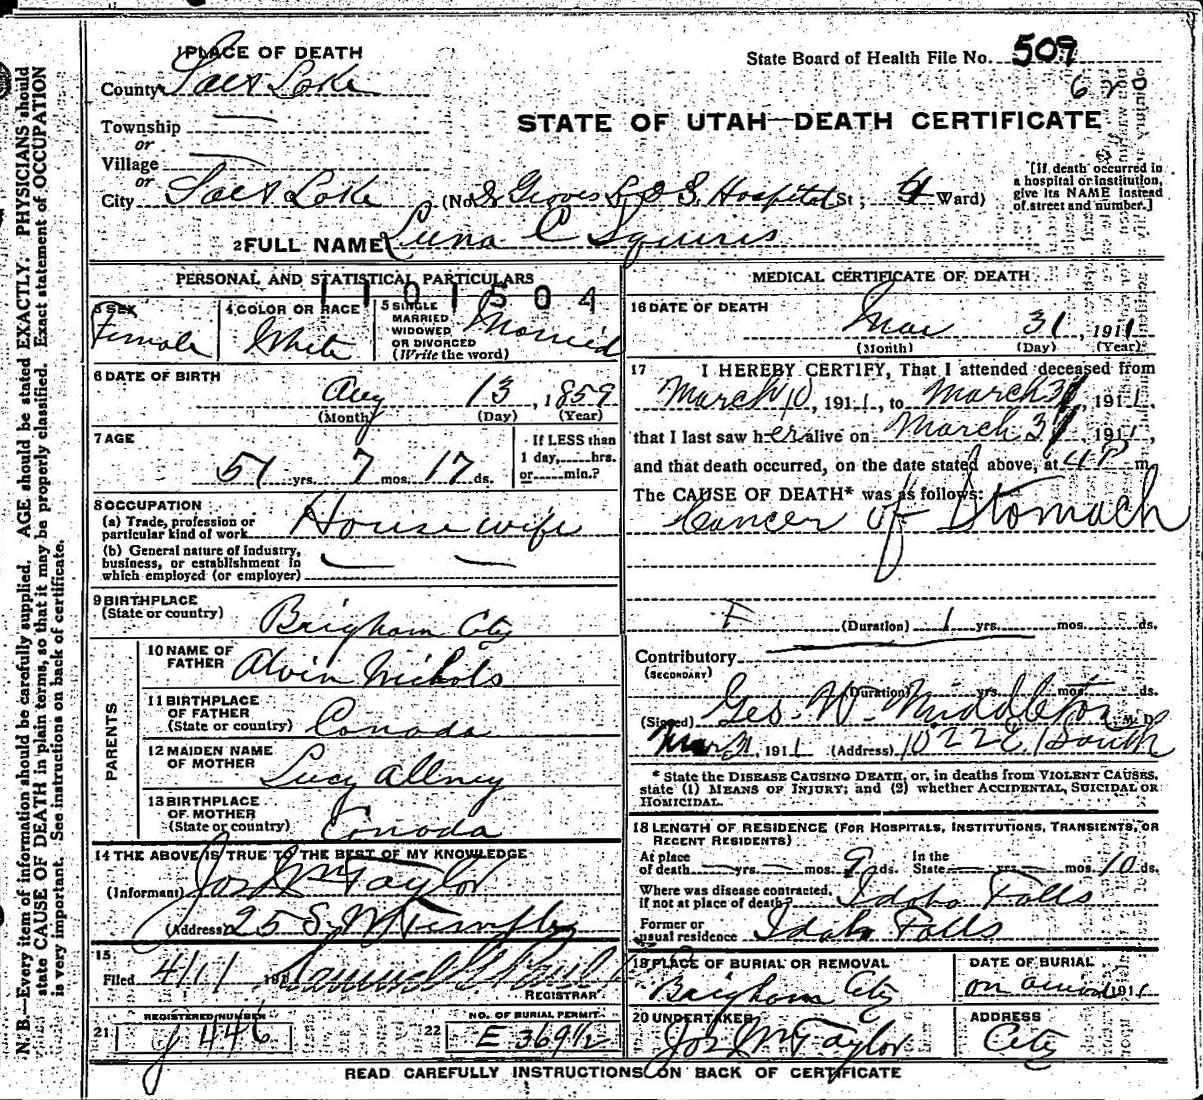 1 PLACE OF DEATH
County Salt Lake
State Board of Health File No. 509
620
Township
or
Village
or
STATE OF UTAH—DEATH CERTIFICATE
City Salt Lake (No. Groves L D S Hospital St; 4 Ward)
[If death occurred in a hospital or institution, give its NAME instead of street and number.]
2 FULL NAME Luna C Squires
PERSONAL AND STATISTICAL PARTICULARS
1101504
3 SEX Female
4 COLOR OR RACE White
5 SINGLE MARRIED WIDOWED OR DIVORCED (Write the word) Married
6 DATE OF BIRTH Aug 13, 1859
(Month) (Day) (Year)
7 AGE 51 yrs. 7 mos. 17 ds.
If LESS than 1 day, hrs. or min.?
8 OCCUPATION
(a) Trade, profession or particular kind of work House wife
(b) General nature of industry, business, or establishment in which employed (or employer)
9 BIRTHPLACE (State or country) Brigham City
PARENTS
10 NAME OF FATHER Alvin Nichols
11 BIRTHPLACE OF FATHER (State or country) Canada
12 MAIDEN NAME OF MOTHER Lucy
13 BIRTHPLACE OF MOTHER (State or country) Canada
14 THE ABOVE IS TRUE TO THE BEST OF MY KNOWLEDGE
(Informant) Jos Wm Taylor
(Address) 25 S. W Temple
15
Filed 4/1 191
REGISTRAR
REGISTERED NUMBER
21 446
NO. OF BURIAL PERMIT
22 E 369 1/2
MEDICAL CERTIFICATE OF DEATH
16 DATE OF DEATH Mar 31, 1911
(Month) (Day) (Year)
17 I HEREBY CERTIFY, That I attended deceased from
March 10, 1911, to March 31, 1911,
that I last saw her alive on March 31, 1911,
and that death occurred, on the date stated above, at 4 P m
The CAUSE OF DEATH* was as follows:
Cancer of Stomach
F (Duration) 1 yrs. mos. ds.
Contributory
(SECONDARY)
(Duration) yrs. mos. ds.
(Signed) Geo. W. Middleton M. D.
Mar 31, 1911 (Address) 1022 E. 1 South
* State the DISEASE CAUSING DEATH, or, in deaths from VIOLENT CAUSES, state (1) MEANS OF INJURY; and (2) whether ACCIDENTAL, SUICIDAL OR HOMICIDAL.
18 LENGTH OF RESIDENCE (FOR HOSPITALS, INSTITUTIONS, TRANSIENTS, OR RECENT RESIDENTS)
At place of death yrs. mos. 9 ds. In the State yrs. mos. 10 ds.
Where was disease contracted, if not at place of death? Idaho Falls
Former or usual residence Idaho Falls
19 PLACE OF BURIAL OR REMOVAL Brigham City
DATE OF BURIAL on arrival 1911
20 UNDERTAKER Jos Wm Taylor
ADDRESS City
READ CAREFULLY INSTRUCTIONS ON BACK OF CERTIFICATE
N. B.—Every item of information should be carefully supplied. AGE should be stated EXACTLY. PHYSICIANS should
state CAUSE OF DEATH in plain terms, so that it may be properly classified. Exact statement of OCCUPATION
is very important. See instructions on back of certificate.